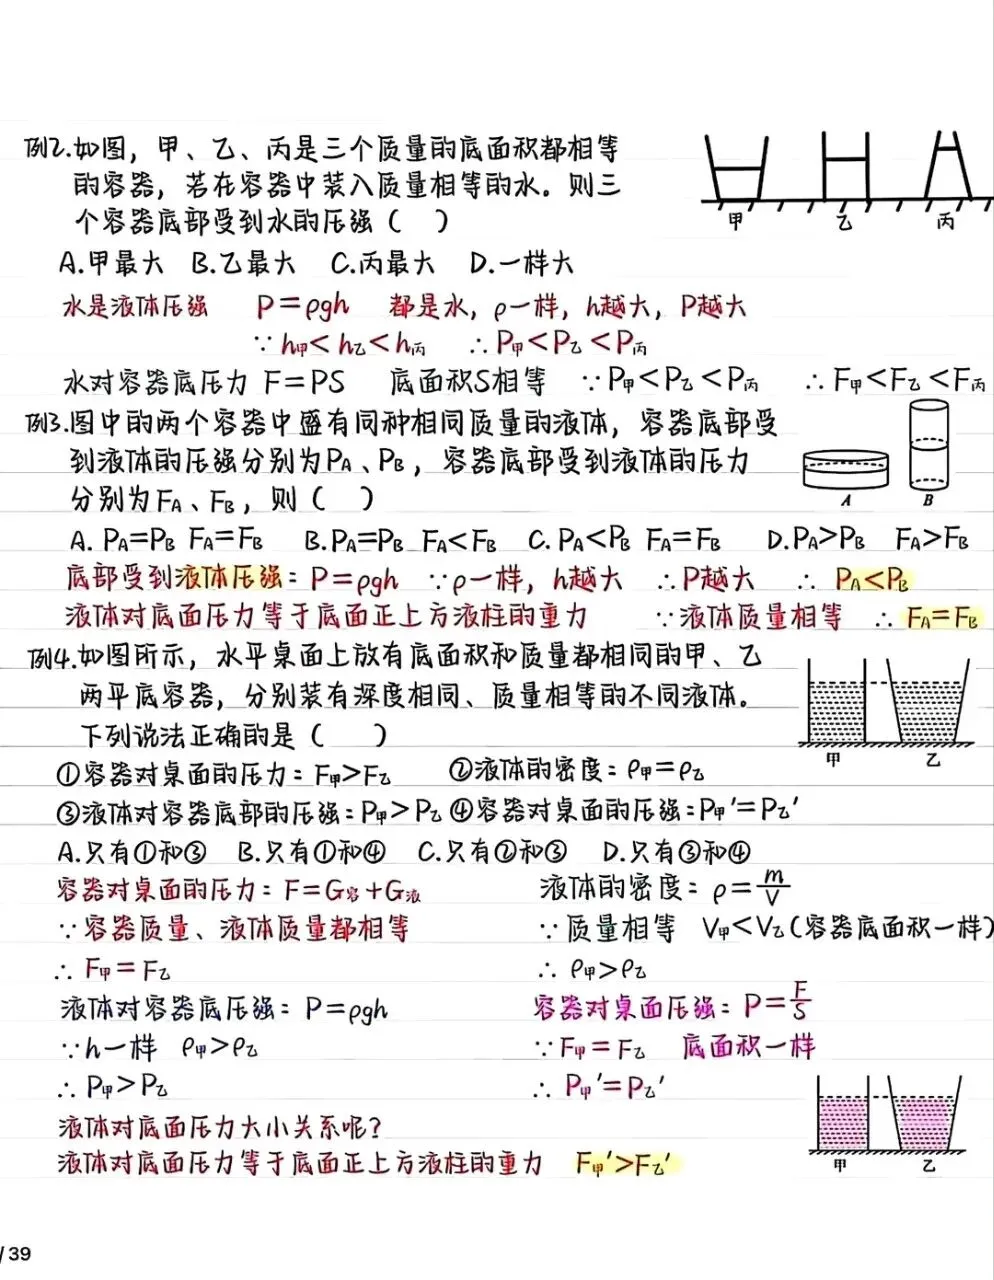 例2.如图，甲、乙、丙是三个质量的底面积都相等
的容器，若在容器中装入质量相等的水。则三
个容器底部受到水的压强（ ）
甲 乙 丙
A.甲最大 B.乙最大 C.丙最大 D.一样大
水是液体压强 P=ρgh 都是水，ρ一样，h越大，P越大
∵h甲<h乙<h丙 ∴P甲<P乙<P丙
水对容器底压力 F=PS 底面积S相等 ∵P甲<P乙<P丙 ∴F甲<F乙<F丙
例3.图中的两个容器中盛有同种相同质量的液体，容器底部受
到液体的压强分别为PA、PB，容器底部受到液体的压力
分别为FA、FB，则（ ）
A B
A. PA=PB FA=FB B.PA=PB FA<FB C. PA<PB FA=FB D.PA>PB FA>FB
底部受到液体压强：P=ρgh ∵ρ一样，h越大 ∴P越大 ∴ PA<PB
液体对底面压力等于底面正上方液柱的重力 ∵液体质量相等 ∴ FA=FB
例4.如图所示，水平桌面上放有底面积和质量都相同的甲、乙
两平底容器，分别装有深度相同、质量相等的不同液体。
下列说法正确的是（ ）
甲 乙
①容器对桌面的压力：F甲>F乙 ②液体的密度：ρ甲=ρ乙
③液体对容器底部的压强：P甲>P乙 ④容器对桌面的压强：P甲′=P乙′
A.只有①和③ B.只有①和④ C.只有②和③ D.只有③和④
容器对桌面的压力：F=G容+G液 液体的密度：ρ=m/V
∵容器质量、液体质量都相等 ∵质量相等 V甲<V乙(容器底面积一样)
∴ F甲=F乙 ∴ ρ甲>ρ乙
液体对容器底压强：P=ρgh 容器对桌面压强：P=F/S
∵h一样 ρ甲>ρ乙 ∵F甲=F乙 底面积一样
∴ P甲>P乙 ∴ P甲′=P乙′
液体对底面压力大小关系呢？
液体对底面压力等于底面正上方液柱的重力 F甲′>F乙′
甲 乙
/39